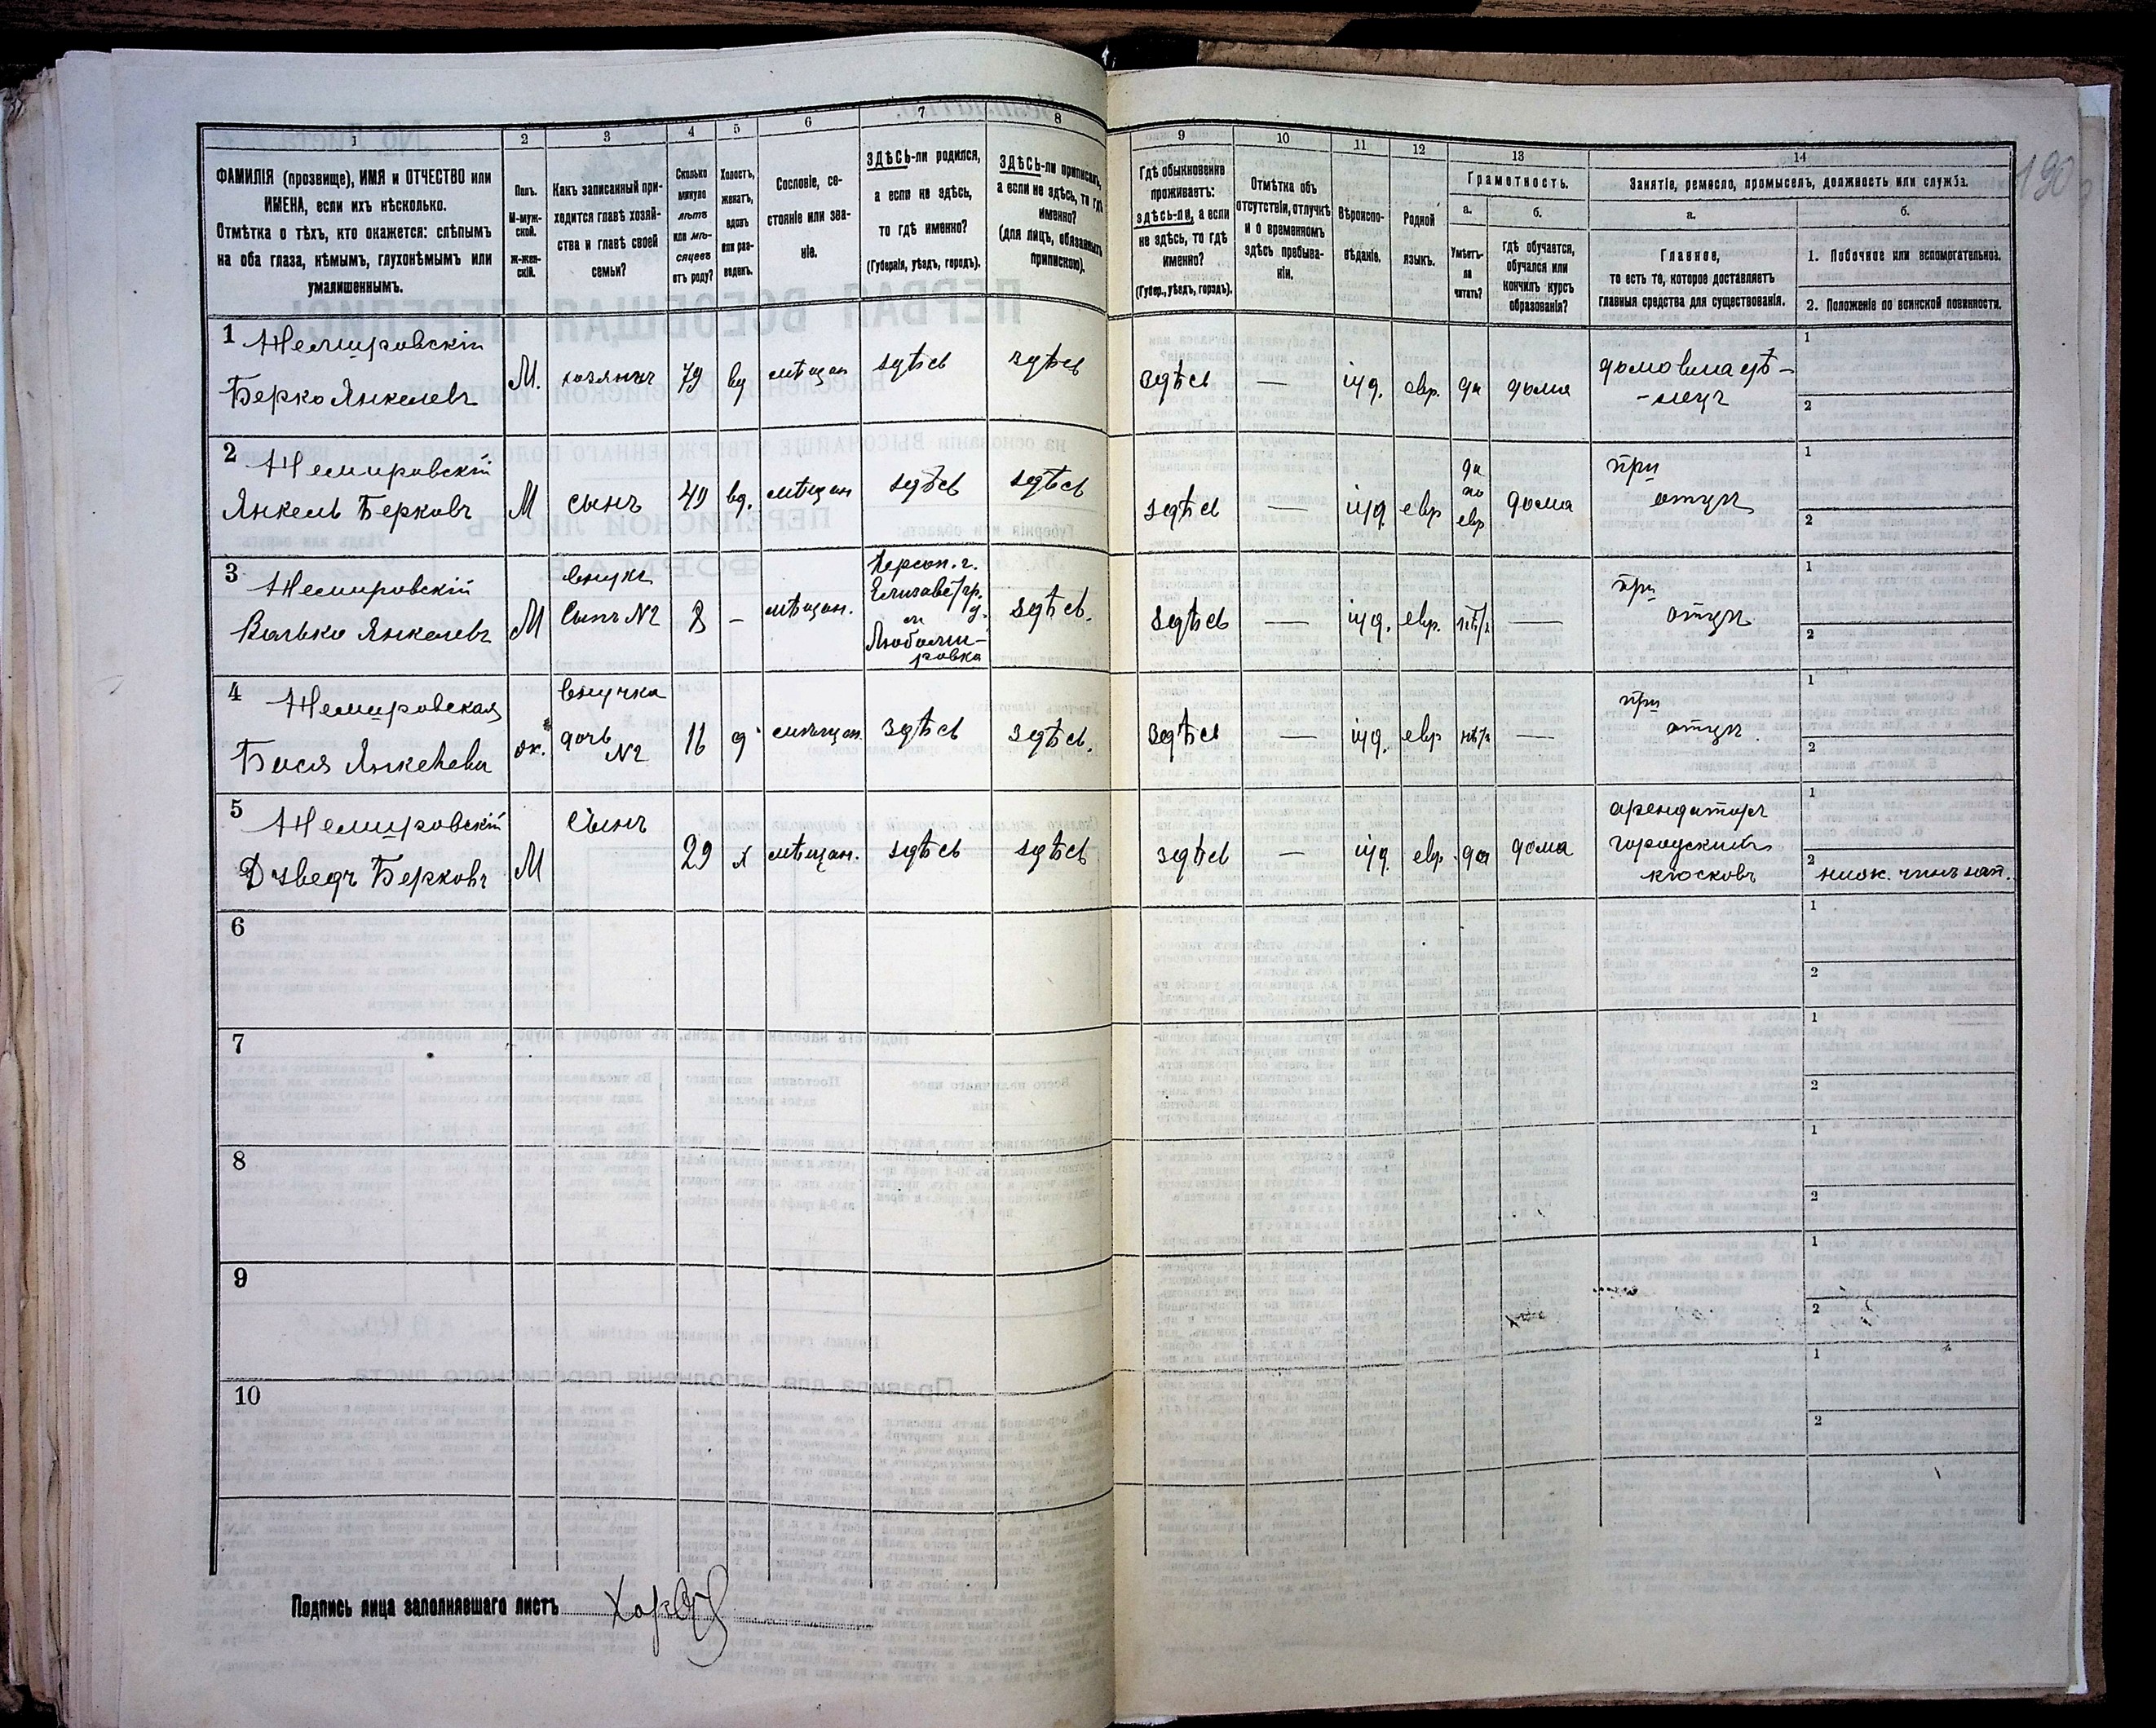 1 2 3 4 5 6 7 8 9 10 11 12 13 14
ФАМИЛІЯ (прозвище), ИМЯ и ОТЧЕСТВО или
ИМЕНА, если ихъ нѣсколько.
Отмѣтка о тѣхъ, кто окажется: слѣпымъ
на оба глаза, нѣмымъ, глухонѣмымъ или
умалишеннымъ.
Полъ.
М-муж-
ской.
ж-жен-
скій.
Какъ записанный при-
ходится главѣ хозяй-
ства и главѣ своей
семьи?
Сколько
минуло
лѣтъ
или мѣ-
сяцевъ
отъ роду?
Холостъ,
женатъ,
вдовъ
или раз-
веденъ.
Сословіе, со-
стояніе или зва-
ніе.
ЗДѢСЬ-ли родился,
а если не здѣсь,
то гдѣ именно?
(Губернія, уѣздъ, городъ).
ЗДѢСЬ-ли приписанъ,
а если не здѣсь, то гдѣ
именно?
(для лицъ, обязанныхъ
припискою).
Гдѣ обыкновенно
проживаетъ:
здѣсь-ли, а если
не здѣсь, то гдѣ
именно?
(Губер., уѣздъ, городъ).
Отмѣтка объ
отсутствіи, отлучкѣ
и о временномъ
здѣсь пребыва-
ніи.
Вѣроиспо-
вѣданіе.
Родной
языкъ.
Грамотность.
а. б.
Умѣетъ-
ли
читать?
гдѣ обучается,
обучался или
кончилъ курсъ
образованія?
Занятіе, ремесло, промыселъ, должность или служба.
а. б.
Главное,
то есть то, которое доставляетъ
главныя средства для существованія.
1. Побочное или вспомогательное.
2. Положеніе по воинской повинности.
190
1 Немировскій
Берко Янкелевъ
М. хозяинъ 79 вд мѣщан здѣсь здѣсь здѣсь — іуд. евр. да дома
домовладѣ-
-лецъ
1
2
2 Немировскій
Янкель Берковъ
М сынъ 49 вд. мѣщан здѣсь здѣсь здѣсь — іуд. евр
да
по
евр
дома
при
отцѣ
1
2
3 Немировскій
Волько Янкелевъ
М
внукъ
Сынъ №2
8 – мѣщан.
Херсон. г.
Елизаветгр.
у.
м
Любоми-
ровка
здѣсь. здѣсь — іуд. евр. нѣтъ —
при
отцѣ
1
2
4 Немировская
Бася Янкелева
ж.
внучка
дочь
№2
16 д мѣщан. здѣсь здѣсь. здѣсь — іуд. евр нѣтъ —
при
отцѣ
1
2
5 Немировскій
Дзведъ Берковъ
М Сынъ 29 х мѣщан. здѣсь здѣсь здѣсь — іуд. евр. да дома
арендаторъ
городскихъ
кіосковъ
1
2
нижн. чинъ зап.
6
1
2
7
1
2
8
1
2
9
1
2
10
1
2
Подпись лица заполнявшаго листъ